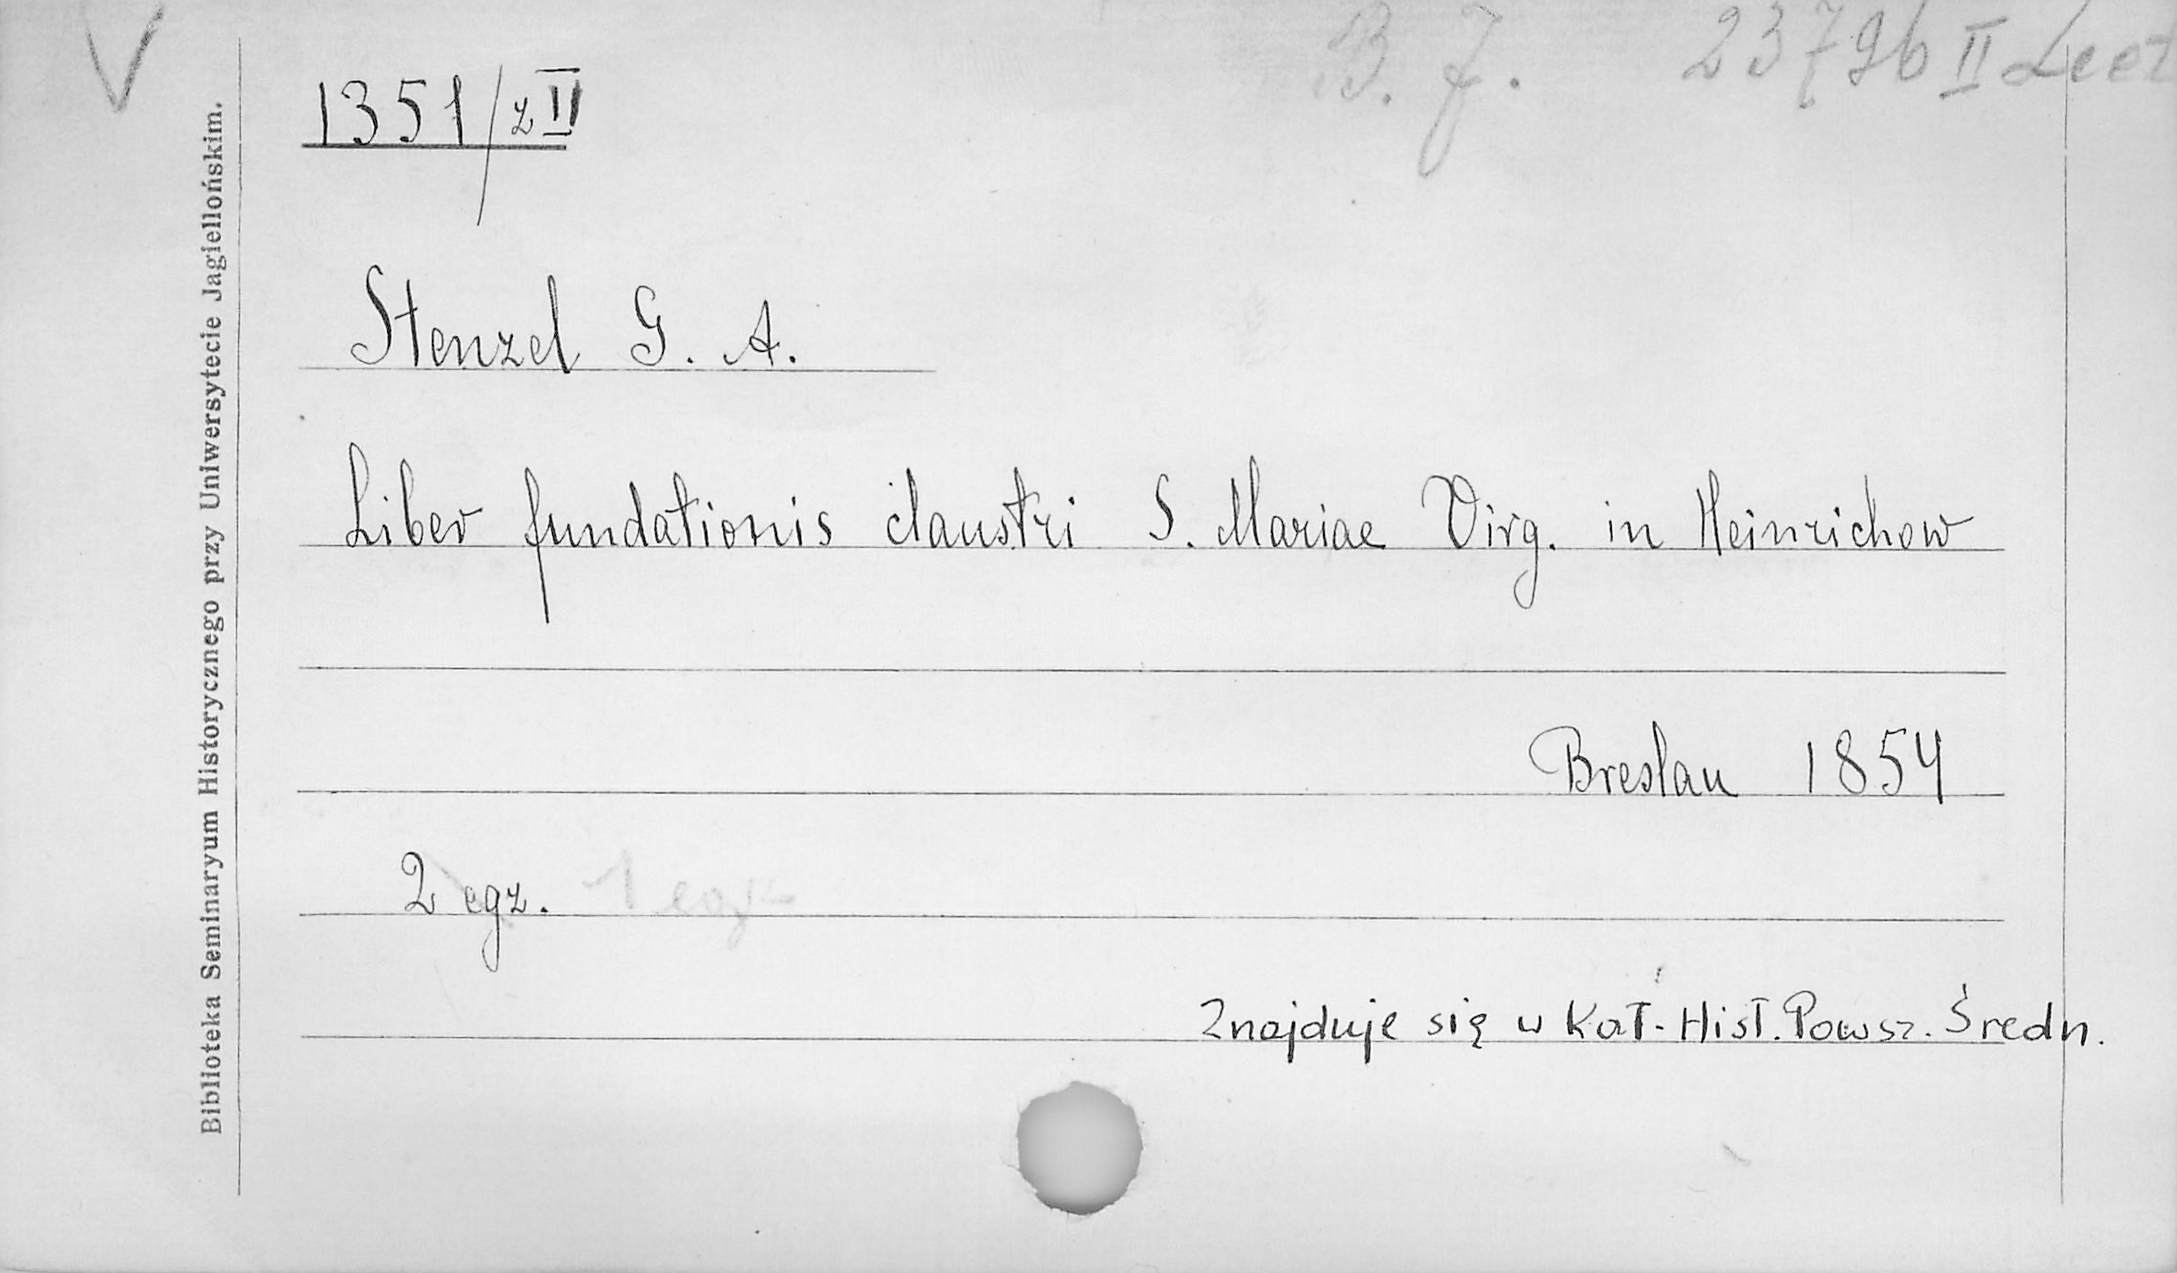 B. J. 23796 II Lect
1351/z II
Stenzel G. A.
Liber fundationis claustri S. Mariae Virg. in Heinrichow
Breslau 1854
2 egz. 1 egz
Znajduje się w Kat. Hist. Powsz. Średn.
Biblioteka Seminaryum Historycznego przy Uniwersytecie Jagiellońskim.